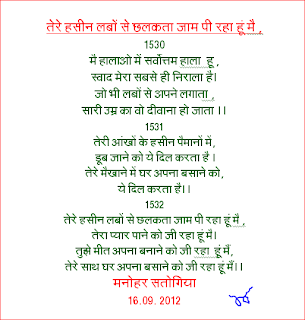 तेरे हसीन लबों से छलकता जाम पी रहा हूं मै ,
1530
मै हालाओ में सर्वोत्तम हाला हू ,
स्वाद मेरा सबसे ही निराला है।
जो भी लबों से अपने लगाता ,
सारी उम्र का वो दीवाना हो जाता ।।
1531
तेरी आंखों के हसीन पैमानों में,
डूब जाने को ये दिल करता है ।
तेरे मैखाने में घर अपना बसाने को,
ये दिल करता है।।
1532
तेरे हसीन लबों से छलकता जाम पी रहा हूं मै ,
तेरा प्यार पाने को जी रहा हूं मैं।
तुझे मीत अपना बनाने को जी रहा हूं मैं,
तेरे साथ घर अपना बसाने को जी रहा हूं मैं।।
मनोहर सतोगिया
16.09. 2012